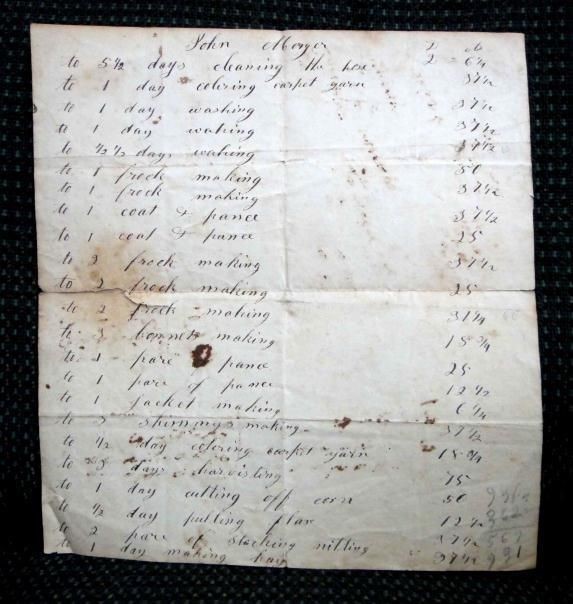 John Monger D cts
to 5 1/2 days cleaning the hous 2 6 1/4
to 1 day coloring carpet yarn 37 1/2
to 1 day washing 37 1/2
to 1 day waking 37 1/2
to days waking 37 1/2
to 1 frock making 50
to 1 frock making 37 1/2
to 1 coat & pance 37 1/2
to 1 coat & pance 25
to 2 frock making 37 1/2
to 2 frock making 25
to 2 frock making 31 1/4
to 3 bonnets making 18 3/4
to 1 pare pance 25
to 1 pare of pance 12 1/2
to 1 jacket making 6 1/4
to 3 shimmys making 37 1/2
to 1/2 day coloring carpet yarn 18 3/4
to 3 days harvisting 75
to 1 day cutting off corn 50
to 1/2 day pulling flax 12 1/2
to 2 pare of stocking nitting 37 1/2
to 1 day making hay 37 1/2